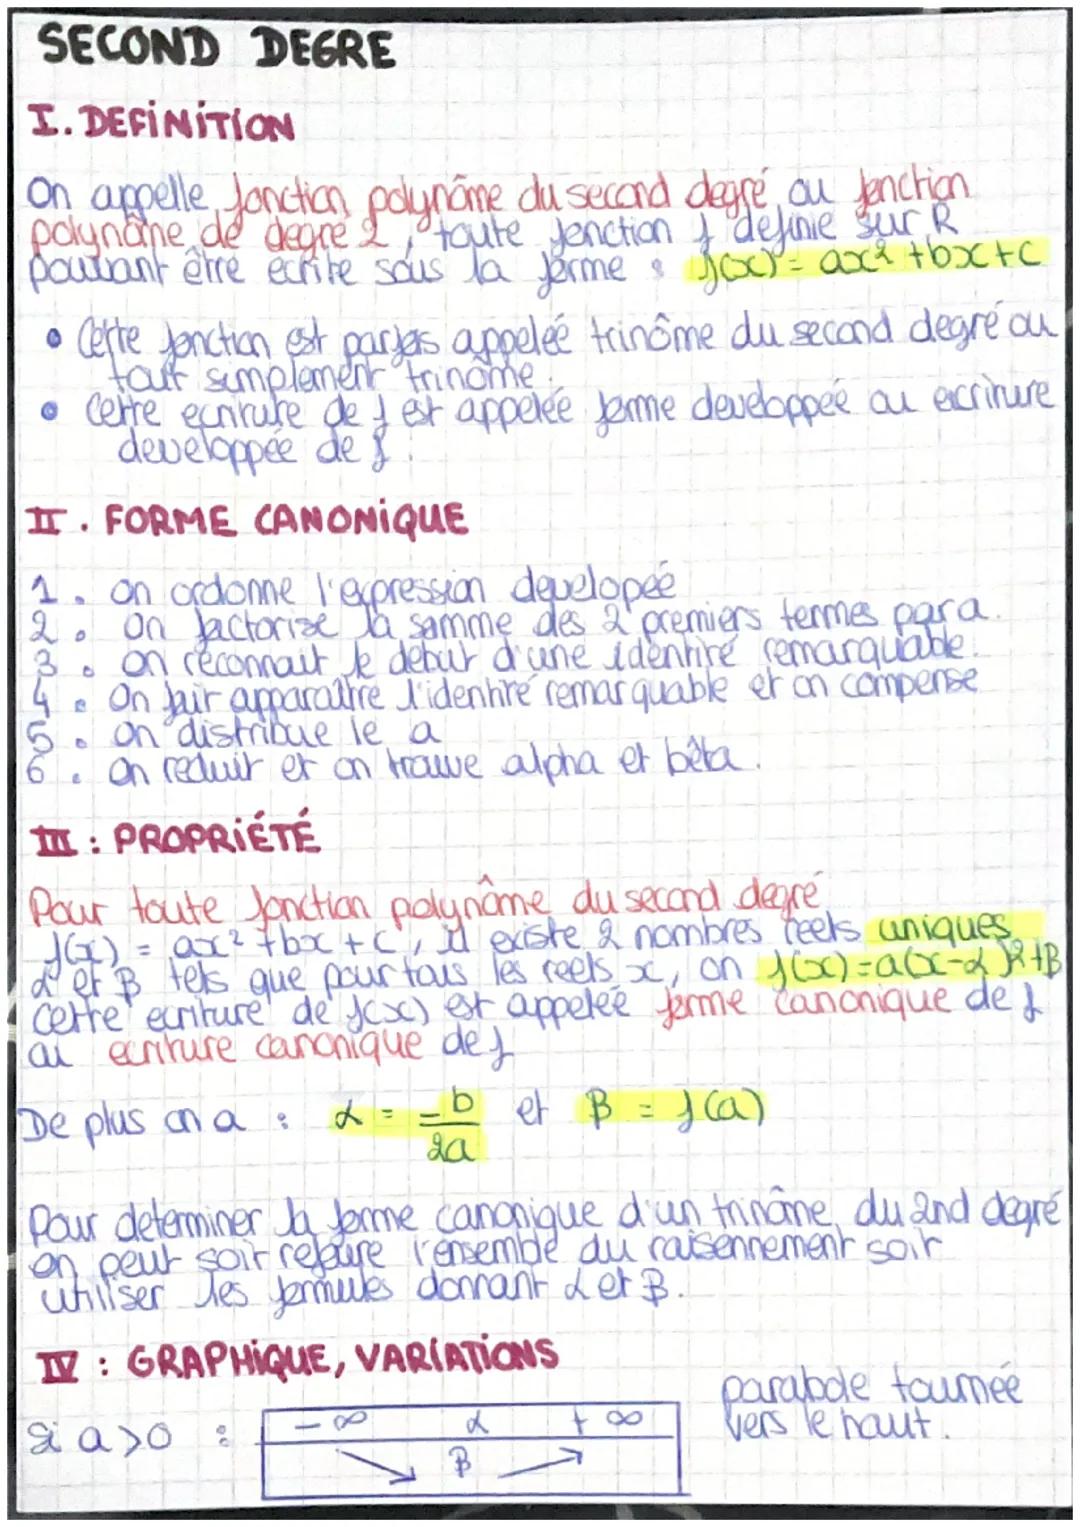 SECOND DEGRE
I. DEFINITION
On appelle fonction polynôme du second degré ou fonction
polynôme de degré 2, toute fonction f definie sur R
pouvant être ecrite sous la forme : f(x) = ax² + bx + c
• Cette fonction est parfois appelée trinôme du second degré ou
tout simplement trinome.
• Cette ecriture de f est appelée forme developpée ou ecriture
developpée de f.
II. FORME CANONIQUE
1. On ordonne l'expression developeé
2. On factorise la somme des 2 premiers termes par a.
3. On reconnait le debut d'une identité remarquable.
4. On fait apparaître l'identité remarquable et on compense
5. On distribue le a
6. On reduit et on trouve alpha et bêta.
III : PROPRIÉTÉ
Pour toute fonction polynôme du second degré
f(x) = ax² + bx + c, il existe 2 nombres reels uniques
α et β tels que pour tous les reels x, on f(x) = a(x-α)² + β
Cette ecriture de f(x) est appelée forme canonique de f
ou ecriture canonique de f
De plus on a : α = -b/2a et β = f(a)
Pour determiner la forme canonique d'un trinôme du 2nd degré
on peut soit refaire l'ensemble du raisennement soit
utiliser les formules donnant α et β.
IV : GRAPHIQUE, VARIATIONS
parabole tournée
vers le haut.
Si a > 0 :
-∞ α +∞
β